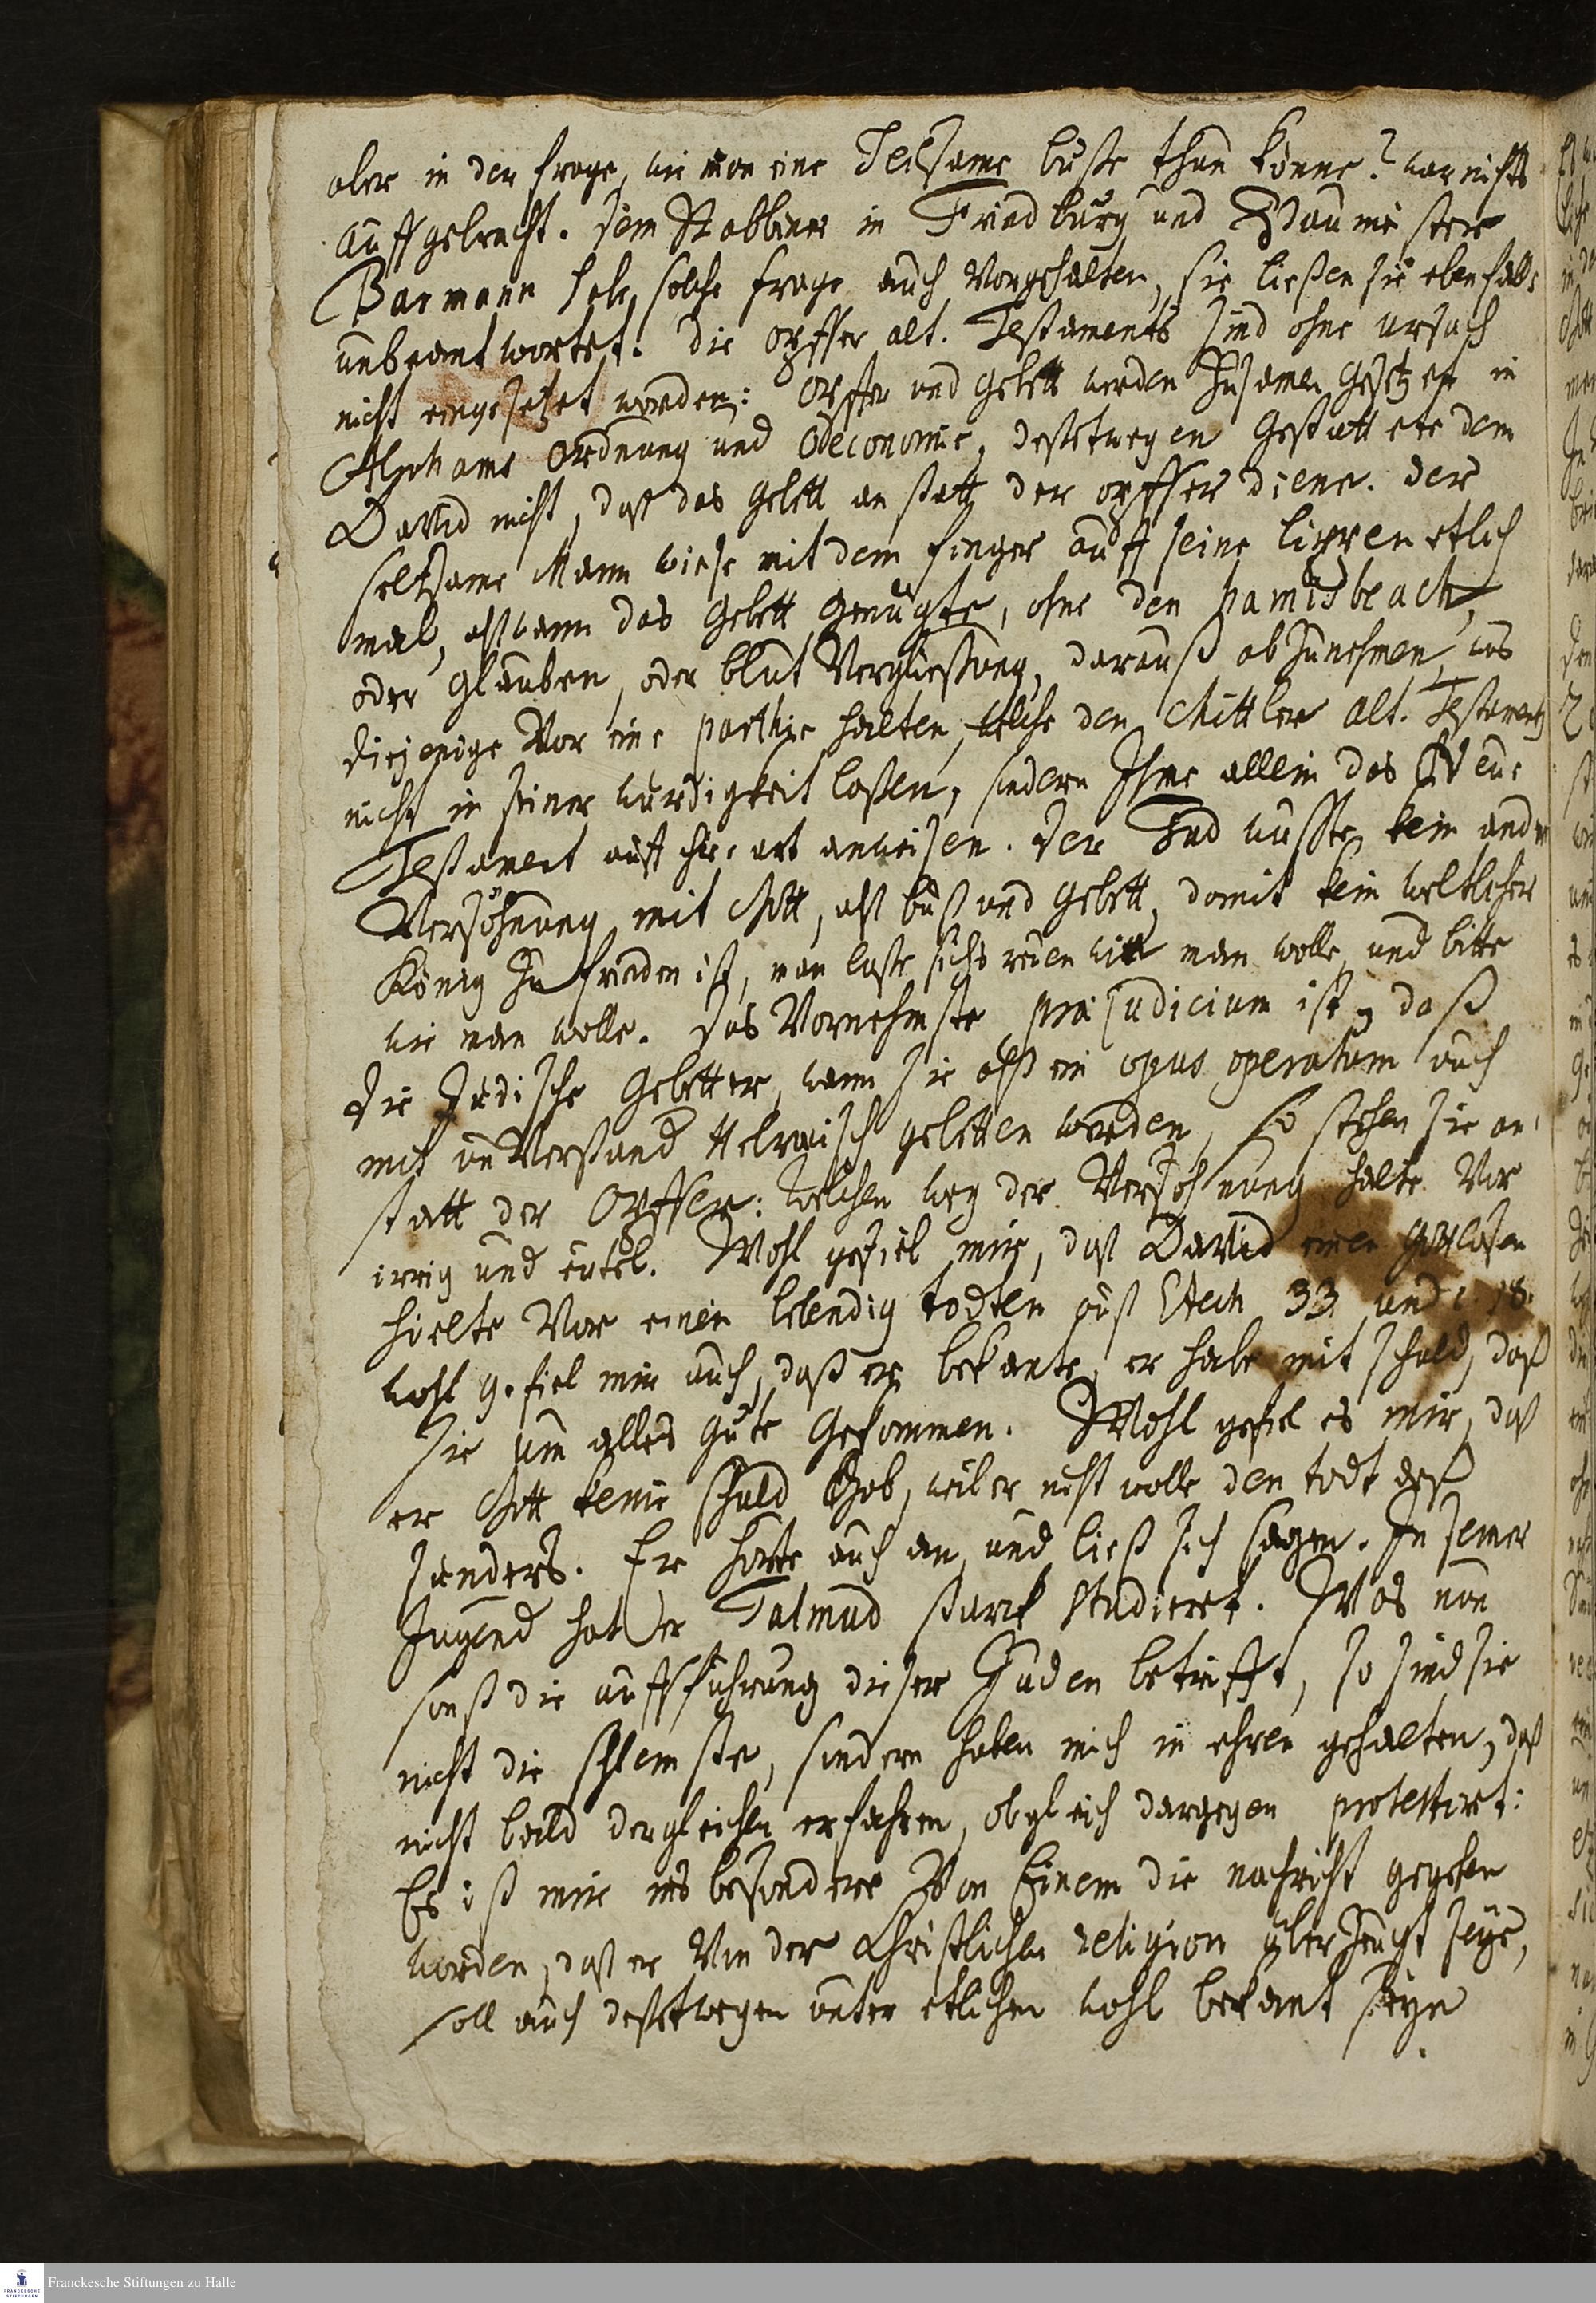 aber in der frage, wie man eine Seltsame buße thun könne? war nichts
auffgebracht. dem Rabbiner in Friedburg und Baumeister
Barmann hab, solche frage auch Vorgehalten, sie ließen sie ebenfalls
unbeantwortet. die opffer alt. Testaments sind ohne ursach
nicht eingesetzet worden: opffer und gebett werden zusamen gesetzet in
Abrahams ordnung und Oeconomie, deßetwegen gestattete dem
David nicht, daß das gebett an statt der opffer diene. der
seltsame Mann wiese mit dem finger auff seine lippen etlich
mal, alß wann das Gebett genugte, ohne den
oder glauben, oder blut Vergiessung, darauß abzunehmen, was
diejenige Vor eine parthie halten, welche den Mittler alt. Testaments
nicht in seiner würdigkeit laßen, sondern Ihme allein das Neue
Testament auff ihre art anweisen. der Jud wußte kein andre
Versöhnung mit Gott, alß buß und Gebett, damit kein weltlicher
König zu frieden ist, man laße sichs reuen wie man wolle, und bitte
wie man wolle. das Vornehmste præjudicium ist, daß
die Jüdische Gebetter, wann sie alß ein opus operatum auch
mit unVerstand Hebraisch gebetten werden, so stehen sie an
statt der Opffer: welchen weg der Versöhnung halte Vor
irrig und eutel. Wohl gefiel mir, daß David einen Gottlosen
hielte Vor einen lebendig todten auß Ezech 33 und c. 18.
wohl gefiel mir auch, daß er bekante, er habe mit schuld, daß
sie um alles gute gekommen. Wohl gefiel es mir, daß
er Gott keine schuld gab, weil er nicht wolle den todt deß
sünders. Er horte auch an, und ließ sich sagen. In seiner
Jugend hat er Talmud starck studieret. Was nun
sonst die auffführung dieser Juden betrifft, so sind sie
nicht die schlimste, sondern haben mich in ehren gehalten, daß
nicht bald dergleichen erfahren, obgleich dargegen protestirt:
Es ist mir ins besondere Von Einem die nachricht gegeben
worden, daß er Von der Christlichen religion überzeugt seye,
soll auch deßetwegen unter etlichen wohl bekant seyn
Franckesche Stiftungen zu Halle